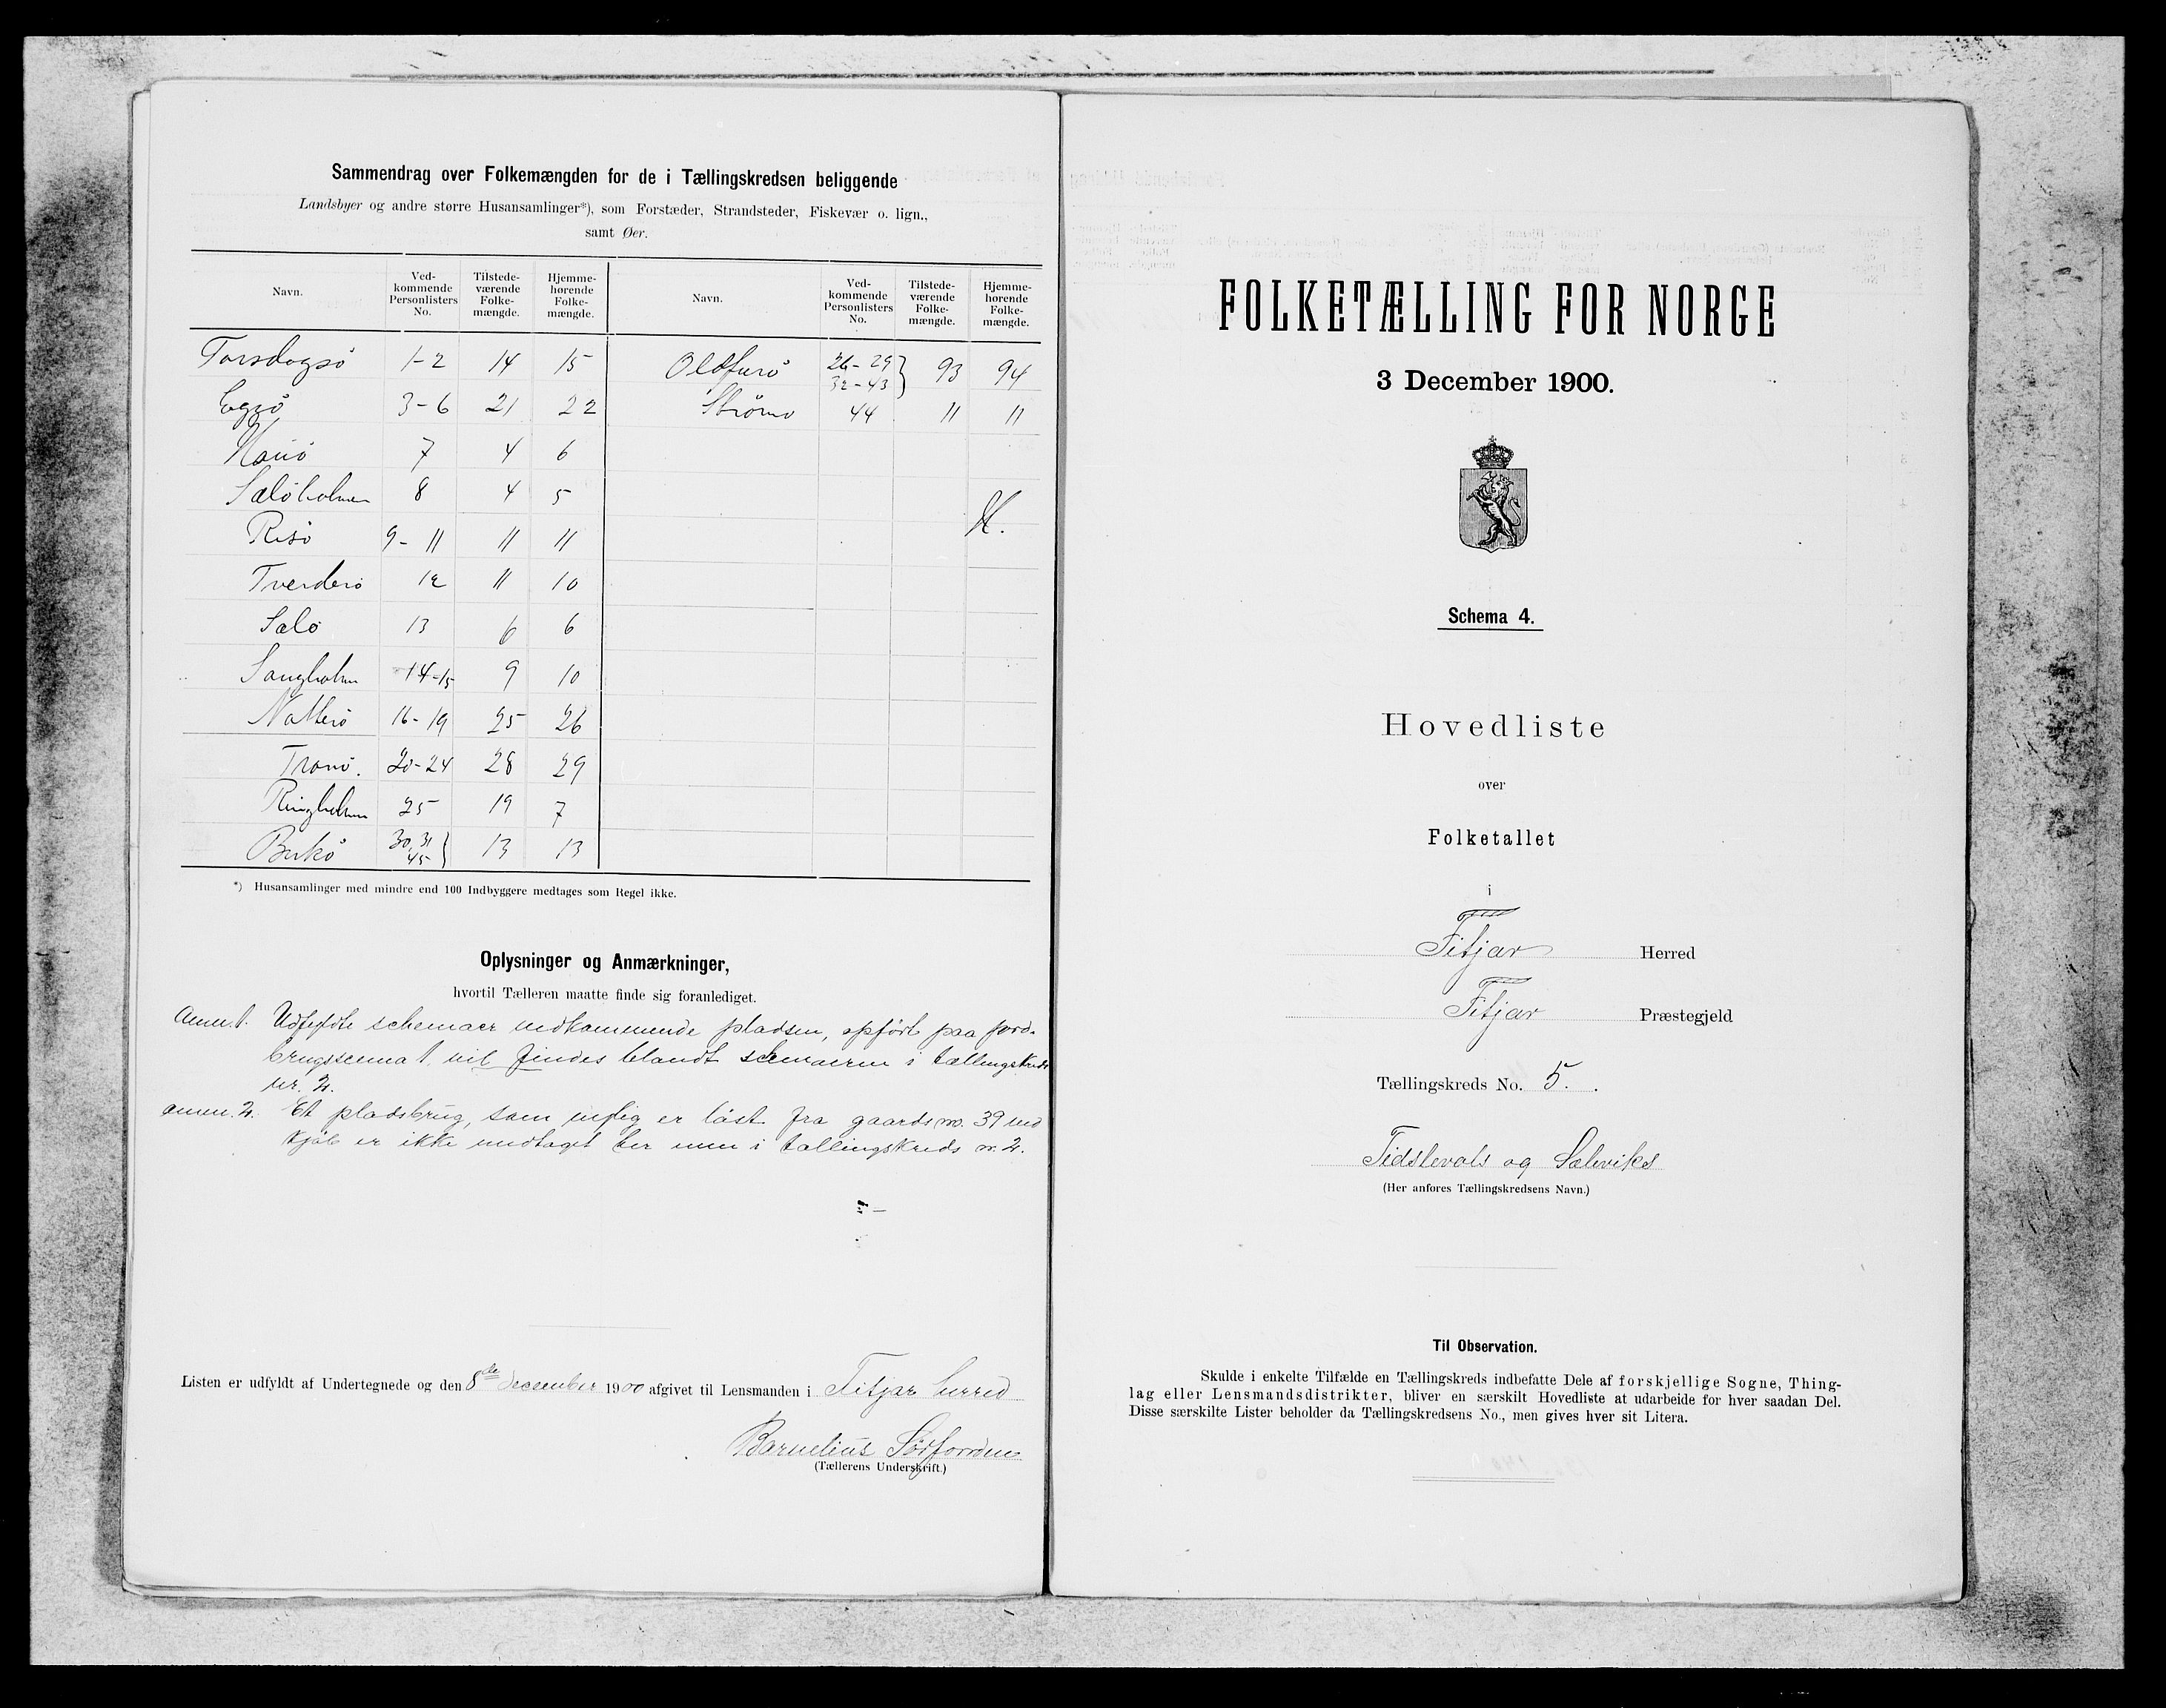 Sammendrag over Folkemængden for de i Tællingskredsen beliggende
Landsbyer og andre større Husansamlinger*), som Forstæder, Strandsteder, Fiskevær o. lign.,
samt Øer.
Navn. Ved-kommende Personlisters No. Tilstede-værende Folke-mængde. Hjemme-hørende Folke-mængde. Navn. Ved-kommende Personlisters No. Tilstede-værende Folke-mængde. Hjemme-hørende Folke-mængde.
Torsdagsø 1-2 14 15 26-29 32-43 } 93 94
Egsø 3-6 21 22 Strømo 44 11 11
7 4 6
Sæløholmen 8 4 5
Risø 9-11 11 11
Tverderø 12 11 10
Sælø 13 6 6
Sangholm 14-15 9 10
Natterø 16-19 25 26
Tranø. 20-24 28 29
Ringholm 25 19 7
30,31 45 } 13 13
*) Husansamlinger med mindre end 100 Indbyggere medtages som Regel ikke.
Oplysninger og Anmærkninger,
hvortil Tælleren maatte finde sig foranlediget.
Anm. 1. Udfyldte schemaer vedkommende pladsen, opført paa jord-
brugsscema 1. vil findes blandt schemaerne i tællingskreds
nr. 2.
anm. 2. Et pladsbrug, som nylig er løst fra gaards no. 39 ved
kjøb er ikke medtaget her men i tællingskreds nr. 2.
Listen er udfyldt af Undertegnede og den 8de december 1900 afgivet til Lensmanden i Fitjar herred
(Tællerens Underskrift.)
FOLKETÆLLING FOR NORGE
3 December 1900.
Schema 4.
Hovedliste
over
Folketallet
i
Fitjar Herred
Fitjar Præstegjeld
Tællingskreds No. 5.
og Sælevikes
(Her anføres Tællingskredsens Navn.)
Til Observation.
Skulde i enkelte Tilfælde en Tællingskreds indbefatte Dele af forskjellige Sogne, Thing-
lag eller Lensmandsdistrikter, bliver en særskilt Hovedliste at udarbeide for hver saadan Del.
Disse særskilte Lister beholder da Tællingskredsens No., men gives hver sit Litera.